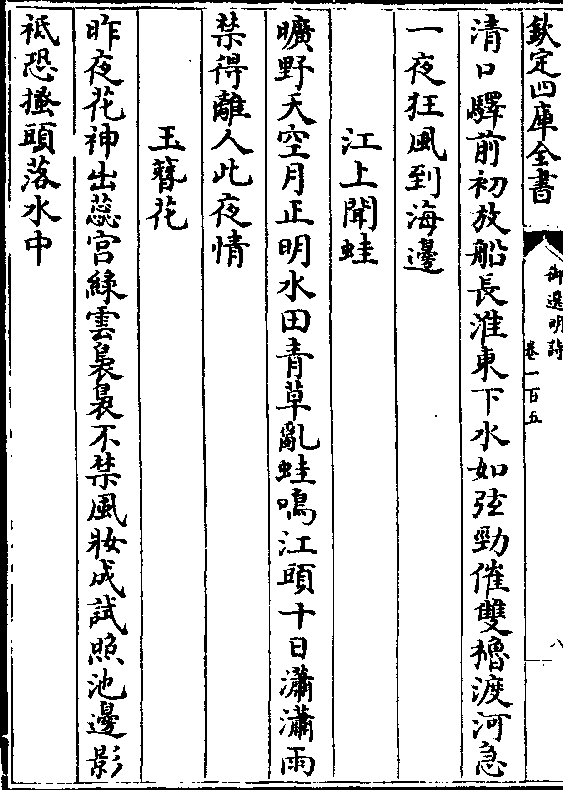 欽定四庫全書
御選明詩
卷一百五
八
清口驛前初放船長淮東下水如弦勁催雙櫓渡河急
一夜狂風到海邊
江上聞蛙
曠野天空月正明水田青草亂蛙鳴江頭十日瀟瀟雨
禁得離人此夜情
玉簪花
昨夜花神出蕊宮綠雲裊裊不禁風妝成試照池邊影
祗恐搔頭落水中